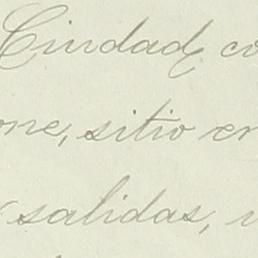 Ciudad, co
one, sitio en
salidas, v